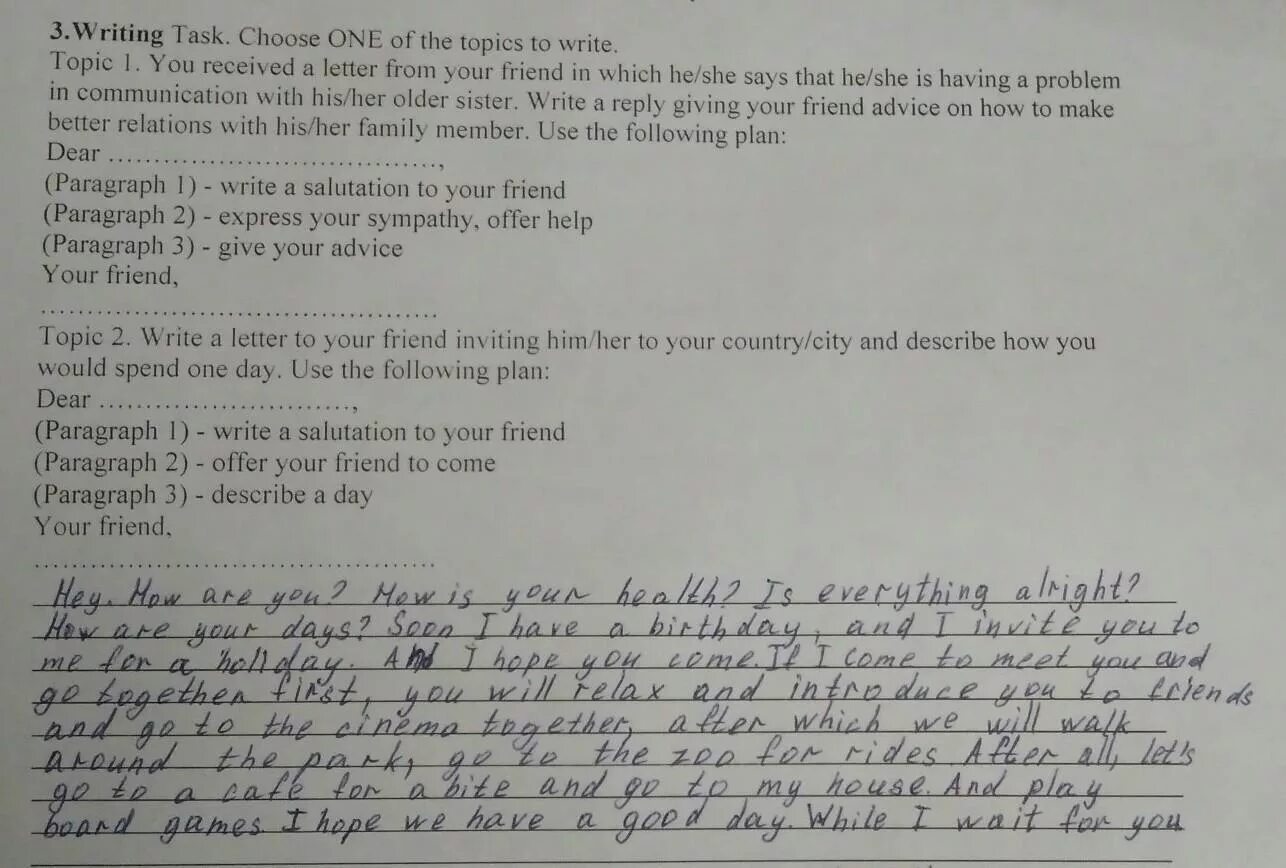 3.Writing Task. Choose ONE of the topics to write.
Topic 1. You received a letter from your friend in which he/she says that he/she is having a problem
in communication with his/her older sister. Write a reply giving your friend advice on how to make
better relations with his/her family member. Use the following plan:
Dear ....................................,
(Paragraph 1) - write a salutation to your friend
(Paragraph 2) - express your sympathy, offer help
(Paragraph 3) - give your advice
Your friend,
...........................................
Topic 2. Write a letter to your friend inviting him/her to your country/city and describe how you
would spend one day. Use the following plan:
Dear ............................,
(Paragraph 1) - write a salutation to your friend
(Paragraph 2) - offer your friend to come
(Paragraph 3) - describe a day
Your friend,
...........................................
Hey. How are you? How is your health? Is everything alright?
How are your days? Soon I have a birthday, and I invite you to
me for a holiday. And I hope you come. If I come to meet you and
go together first, you will relax and introduce you to friends
and go to the cinema together, after which we will walk
around the park, go to the zoo for rides. After all, let's
go to a cafe for a bite and go to my house. And play
board games. I hope we have a good day. While I wait for you